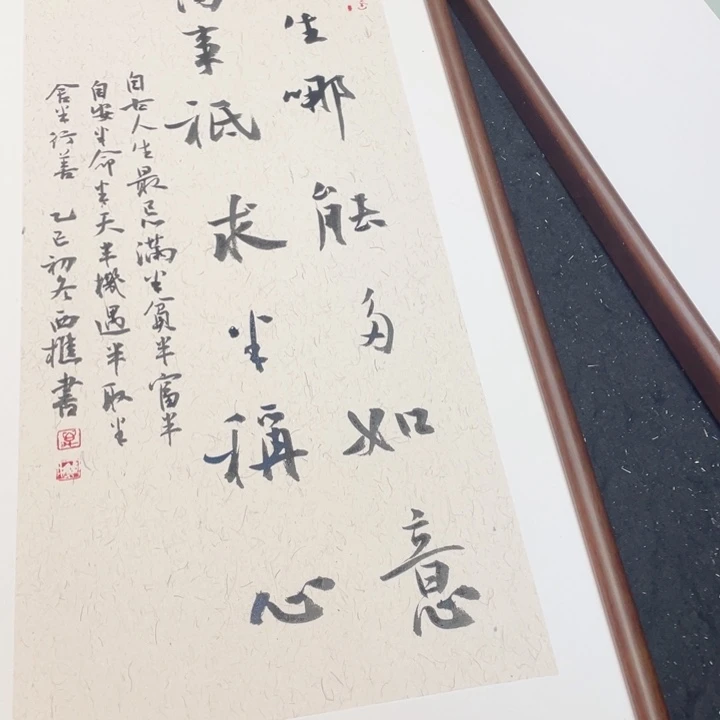 生哪能多如意
事祇求半稱心
自古人生最忌滿半貧半富半
自安半命半天半機遇半取半
舍半行善 乙巳初冬西樵書